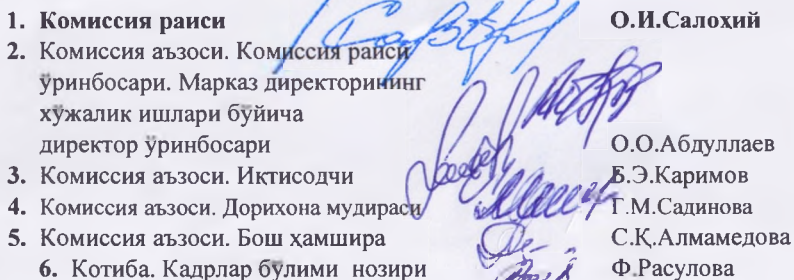 1. Комиссия раиси О.И.Салоҳий
2. Комиссия аъзоси. Комиссия раиси
ўринбосари. Марказ директорининг
хўжалик ишлари бўйича
директор ўринбосари О.О.Абдуллаев
3. Комиссия аъзоси. Иқтисодчи Б.Э.Каримов
4. Комиссия аъзоси. Дорихона мудираси Г.М.Садинова
5. Комиссия аъзоси. Бош ҳамшира С.Қ.Алмамедова
6. Котиба. Кадрлар бўлими нозири Ф.Расулова